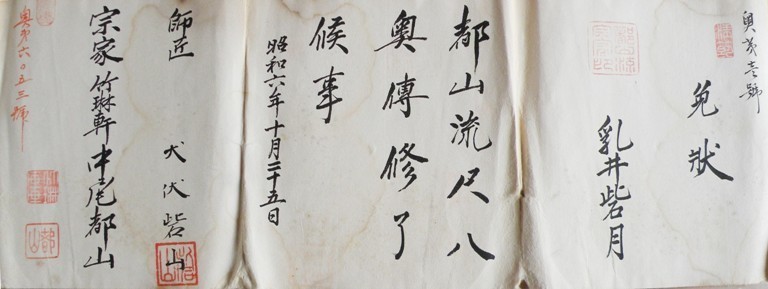 奥第壹號
免狀
乳井砦月
都山流尺八
奥傳修了
候事
昭和六年十月二十五日
師匠 犬伏砦山
宗家 竹琳軒 中尾都山
奥第六〇五三號
都山